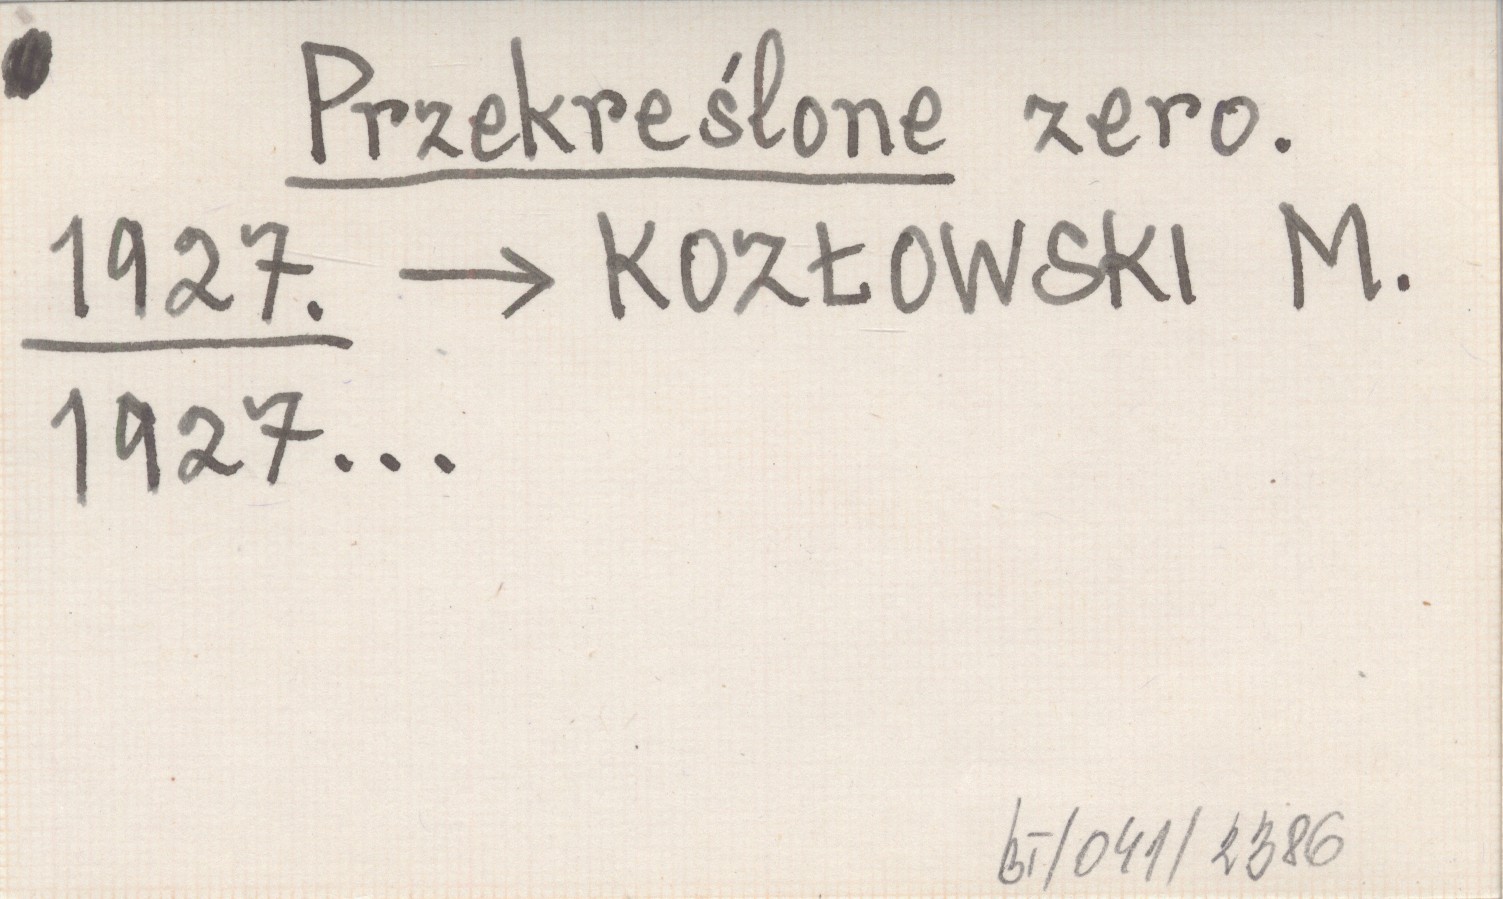 Przekreślone zero.
1927. → KOZŁOWSKI M.
1927...
/041/2386